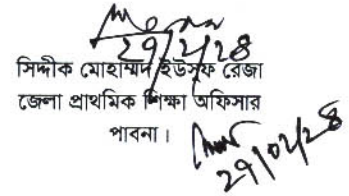 ২৭/২/২৪
সিদ্দীক মোহাম্মদ ইউসুফ রেজা
জেলা প্রাথমিক শিক্ষা অফিসার
পাবনা।
২৭/০২/২৪